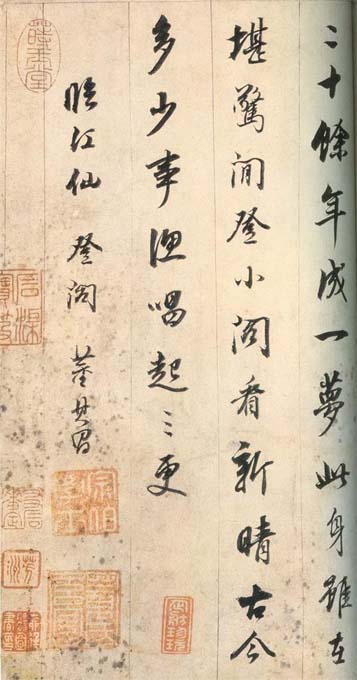 二十餘年成一夢此身雖在
堪驚閒登小閣看新晴古今
多少事漁唱起三更
臨江仙 登閣 董其昌